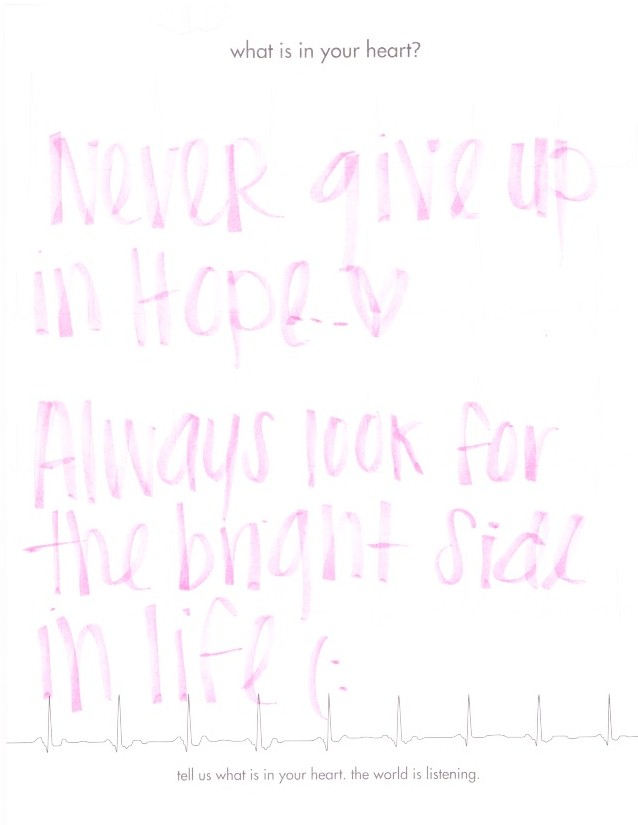 what is in your heart?
Never give up
in Hope--♡
Always look for
the bright side
in life (:
tell us what is in your heart. the world is listening.